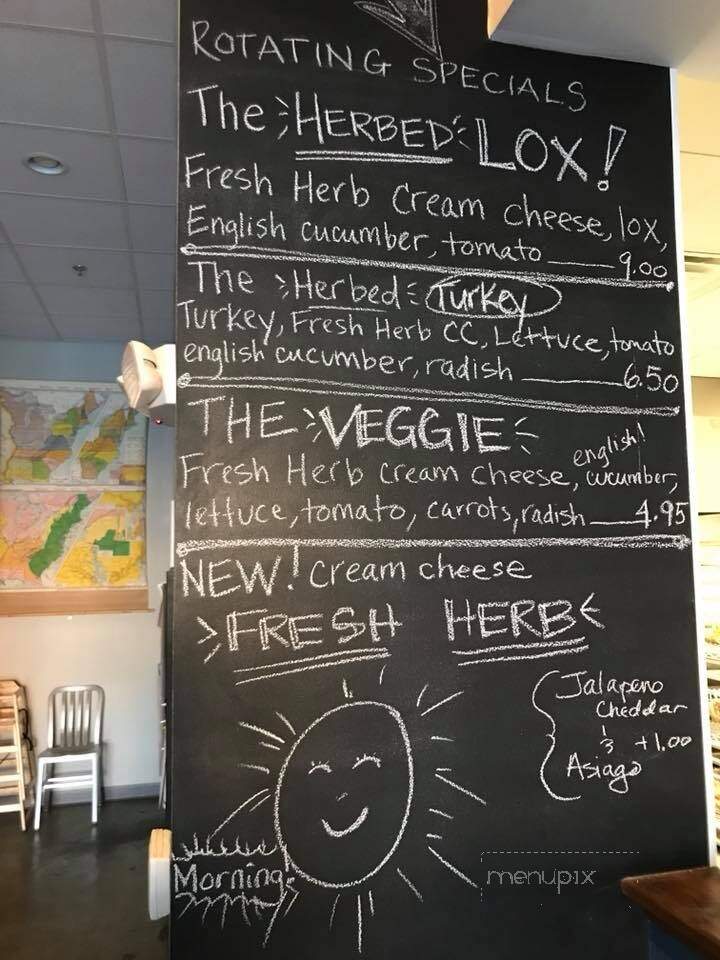 ROTATING SPECIALS
The HERBED LOX!
Fresh Herb Cream cheese, lox,
English cucumber, tomato 9.00
The Herbed Turkey
Turkey, Fresh Herb CC, Lettuce, tomato
english cucumber, radish 6.50
THE VEGGIE
english!
Fresh Herb cream cheese, cucumber,
lettuce, tomato, carrots, radish 4.95
NEW! Cream cheese
FRESH HERB
Jalapeno
Cheddar
+1.00
Asiago
Morning!
menupix